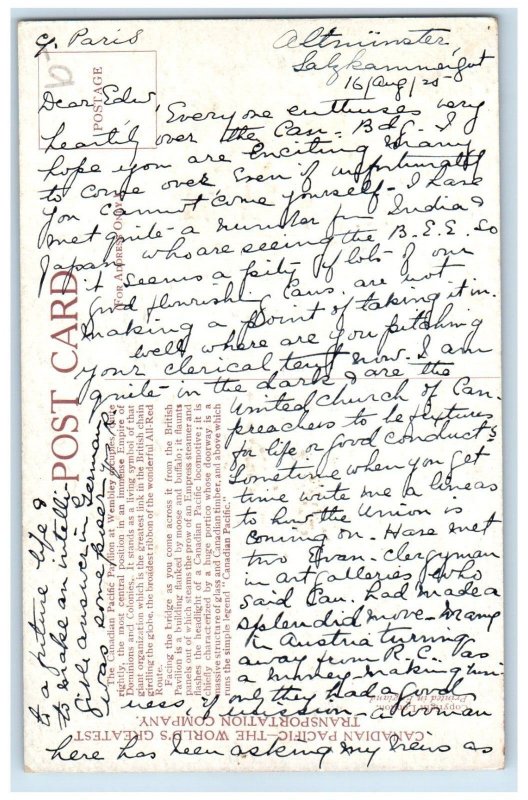 c/o Paris
Altmünster,
Salzkammergut
16/Aug/25
Dear Edw.,
Everyone enthuses very
heartily over the Can. Bdg. I
hope you are exciting many
to come over even if unfortunately
you cannot come yourself. I have
met quite a number fr. India &
Japan who are seeing the B.E.E. So
it seems a pity if lots of our
good flourishing Cans. are not
making a point of taking it in.
Well where are you pitching
your clerical tent now. I am
quite in the dark & are the
United Church of Can.
preachers to be fixtures
for life or good conduct?
Sometime when you get
time write me a line as
to how the Union is
coming on. Have met
two clergymen
in art galleries who
said Can. had made a
splendid move. Many
in Austria turning
away from R.C. as
a money making bus-
iness, if only they had a good
mission, a woman
here has been asking my views as
to a future life &
to make an intelli-
gible answer in German
was some puzzle
POSTAGE
POST CARD
(FOR ADDRESS ONLY)
The Canadian Pacific Pavilion at Wembley occupies, quite
rightly, the most central position in an Immense Empire of
Dominions and Colonies. It stands as a living symbol of that
giant organization which is the greatest link in the British chain
girdling the globe, the broadest ribbon of the wonderful All-Red
Route.
Facing the bridge as you come across it from the British
Pavilion is a building flanked by moose and buffalo; it flaunts
panels out of which steams the prow of an Empress steamer and
flashes the headlight of a Canadian Pacific locomotive; it is
chiefly characterized by a huge portico whose doorway is a
massive structure of glass and Canadian timber, and above which
runs the simple legend "Canadian Pacific."
CANADIAN PACIFIC—THE WORLD'S GREATEST
TRANSPORTATION COMPANY.
Copyright
Printed in England